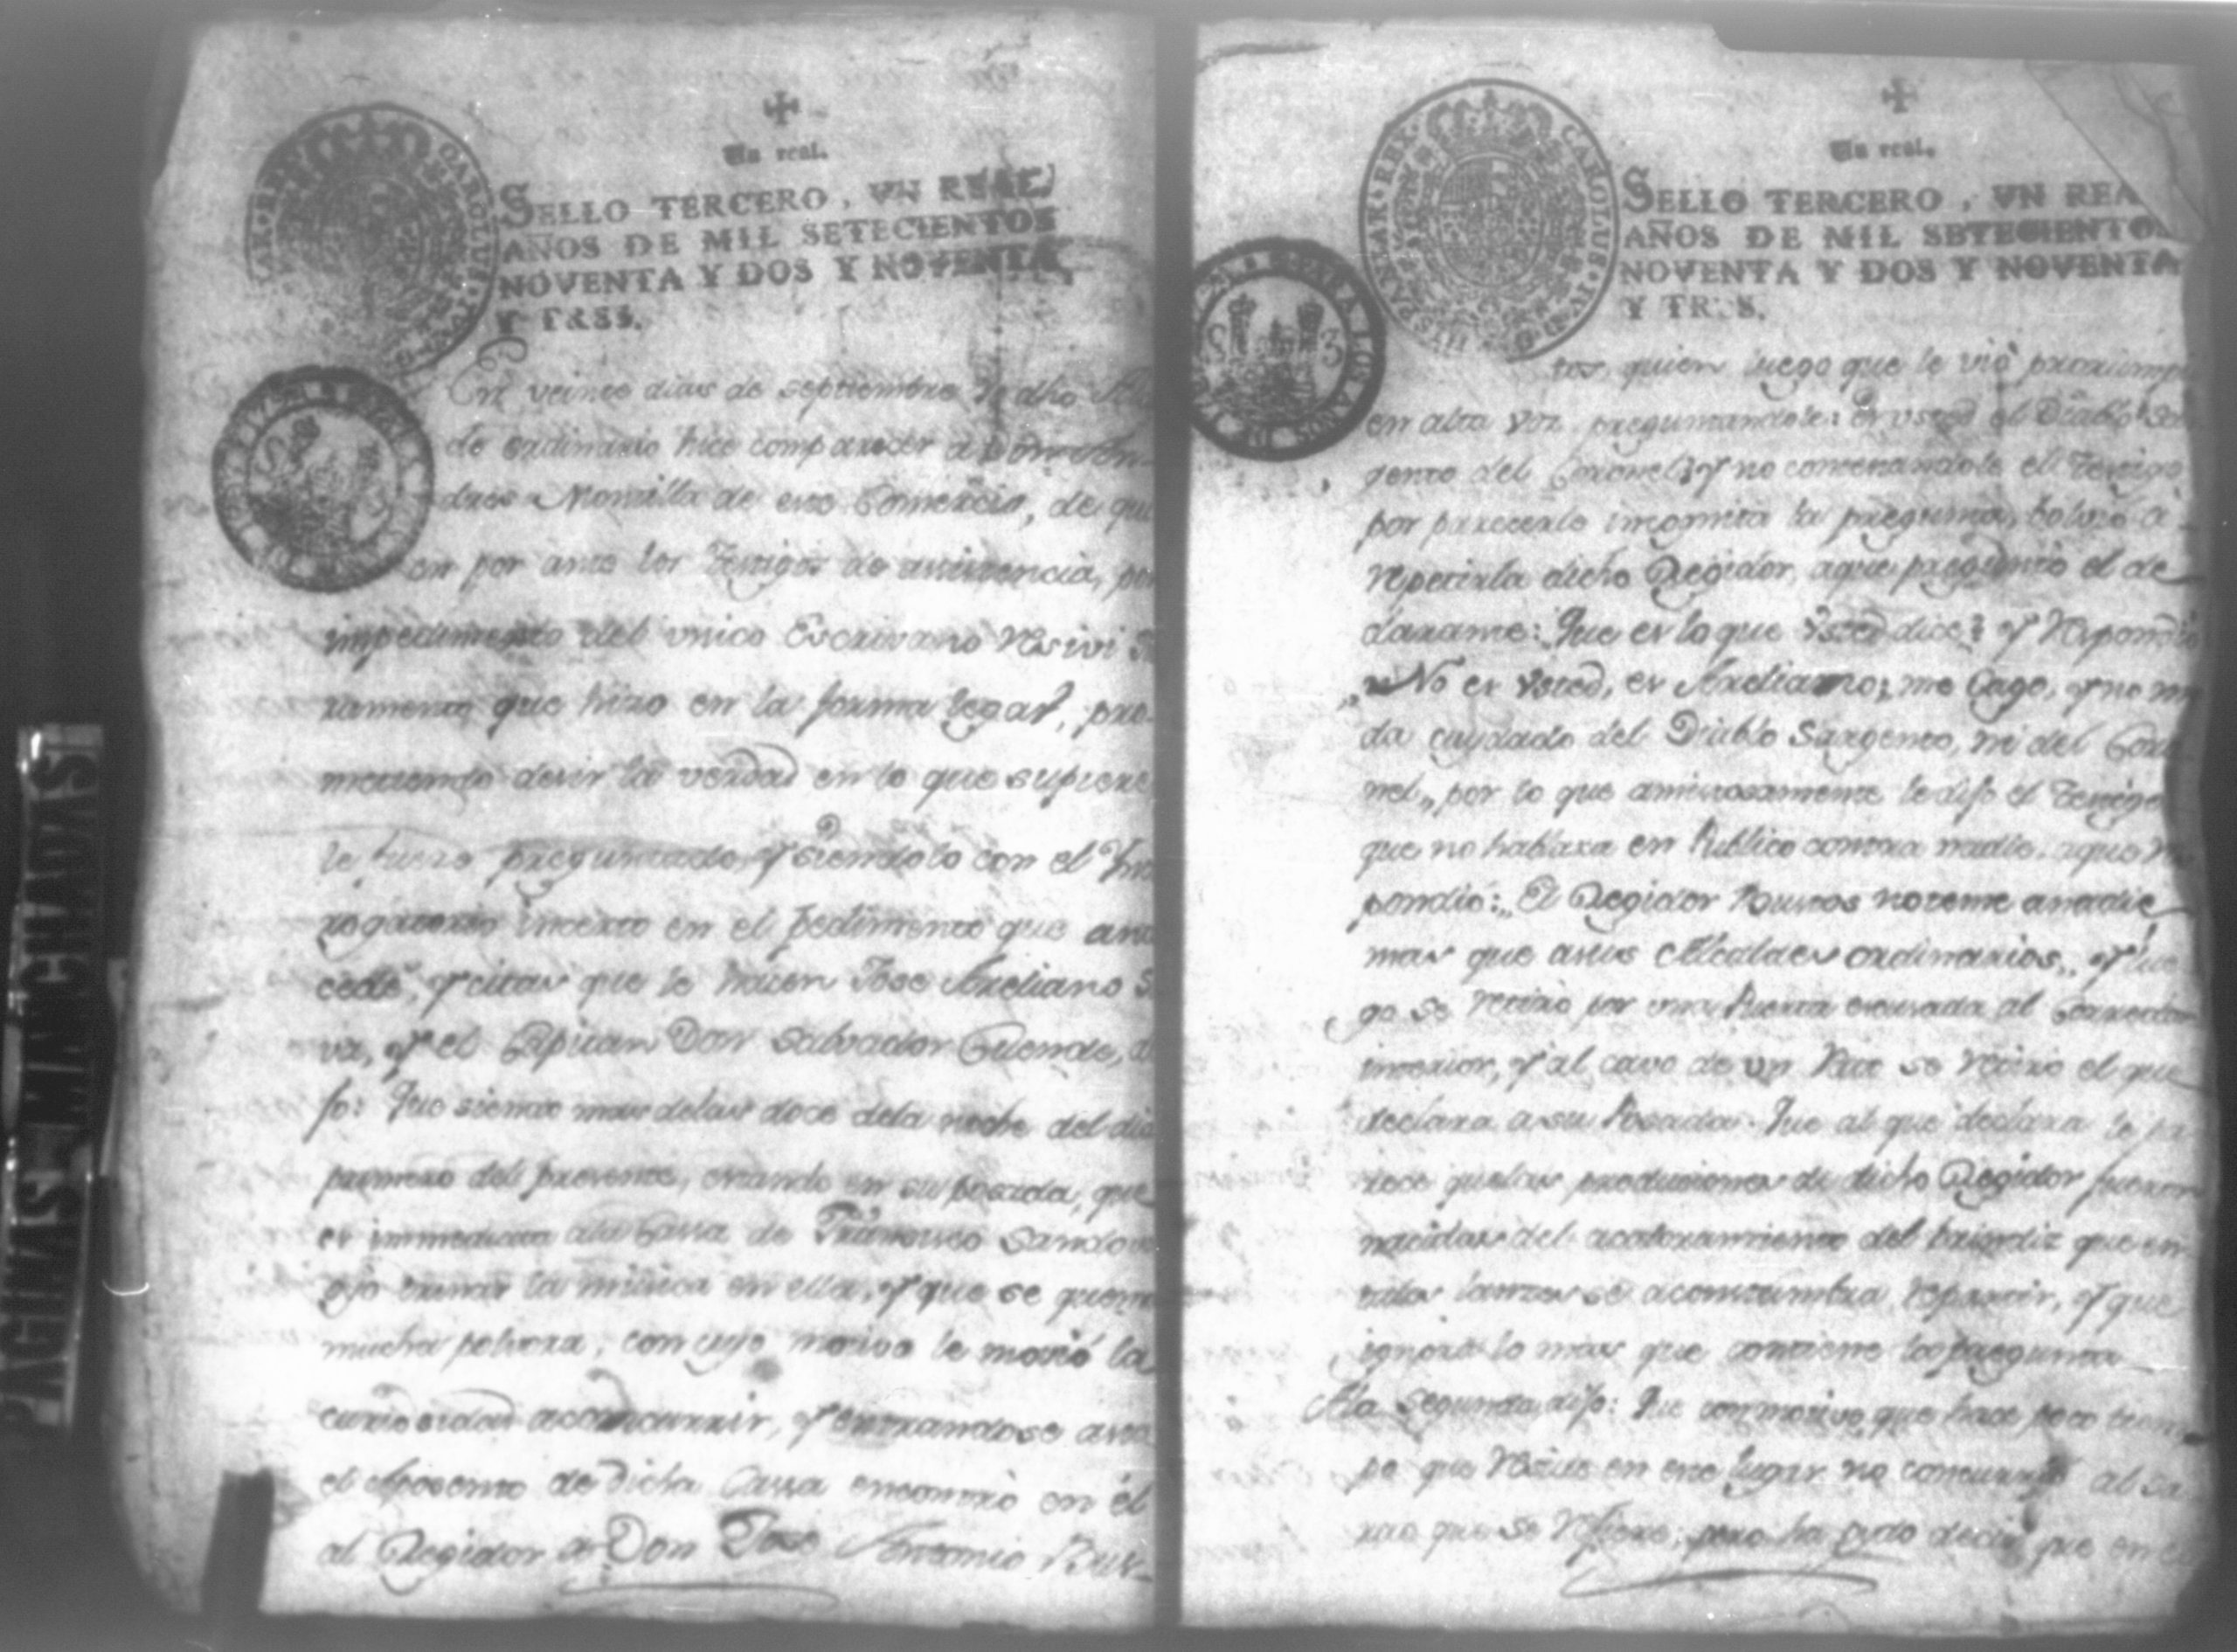 Un real.
SELLO TERCERO, VN REAL
AÑOS DE MIL SETECIENTOS
NOVENTA Y DOS Y NOVENTA
Y TRES.
En veinte dias de septiembre de dho
de ordinario hice comparecer a Don An-
dres Momilla de este Comercio, de qui
en por ante los Testigos de asistencia, por
impedimento del vnico Escrivano resivi Ju
ramento que hizo en la forma legal, pro-
metiendo desir la verdad en lo que supiere
le fuere preguntado, y siendolo con el Inte
rogatorio inserto en el pedimento que ante
cede, y citas que le hacen Jose Areliano Sil
va, y el Capitan Don Salvador Allende, di
fo: Que siendo mas delas doce dela noche del dia
primero del presente, estando en su posada, que
es immediata ala Cassa de Francisco Sandov
oyó tocar la música en ella, y que se quema
mucha polvora, con cuyo motivo le movió la
curiosidad aconcurrir, y entrandose asta
el Aposento de dicha Cassa encontró en él
al Regidor Don José Antonio Bus-
PAGINAS MANCHADAS
Un real.
SELLO TERCERO, VN REA
AÑOS DE MIL SETECIENTOS
NOVENTA Y DOS Y NOVENTA
Y TRES.
tos, quien luego que le vió prorrump
en alta voz preguntandole: es vsted el Diablo Sar
gento del Coronel? y no contestandole el Testigo
por parecerle incognita la pregunta, bolvio a
repetirla dicho Regidor, aque preguntó el de
clarante: Que es lo que Vsted dice? y respondio
No es Vsted, es Areliano; me Cago, y no me
da cuydado del Diablo Sargento, ni del Coro
nel, por lo que amistosamente le difo el Testigo
que no hablara en Publico contra nadie. aque res
pondió: El Regidor Bustos no teme anadie
mas que asus Alcaldes ordinarios, y lue
go se retiro por una Puerta escusada al Corredor
interior, y al cavo de un Rato se retiró el que
declara a su Posada. Que al que declara le pa
rece quelas producciones de dicho Regidor fueron
nacidas del acaloramiento del brindiz que en
tales lanzes se acostumbra repartir, y que
ignora lo mas que contiene la pregunta
Ala segunda difo: Que con motivo que hace poco tiem
po que Reside en este lugar no concurrió al Sa
rao que se refiere; pero ha oydo decir que en el